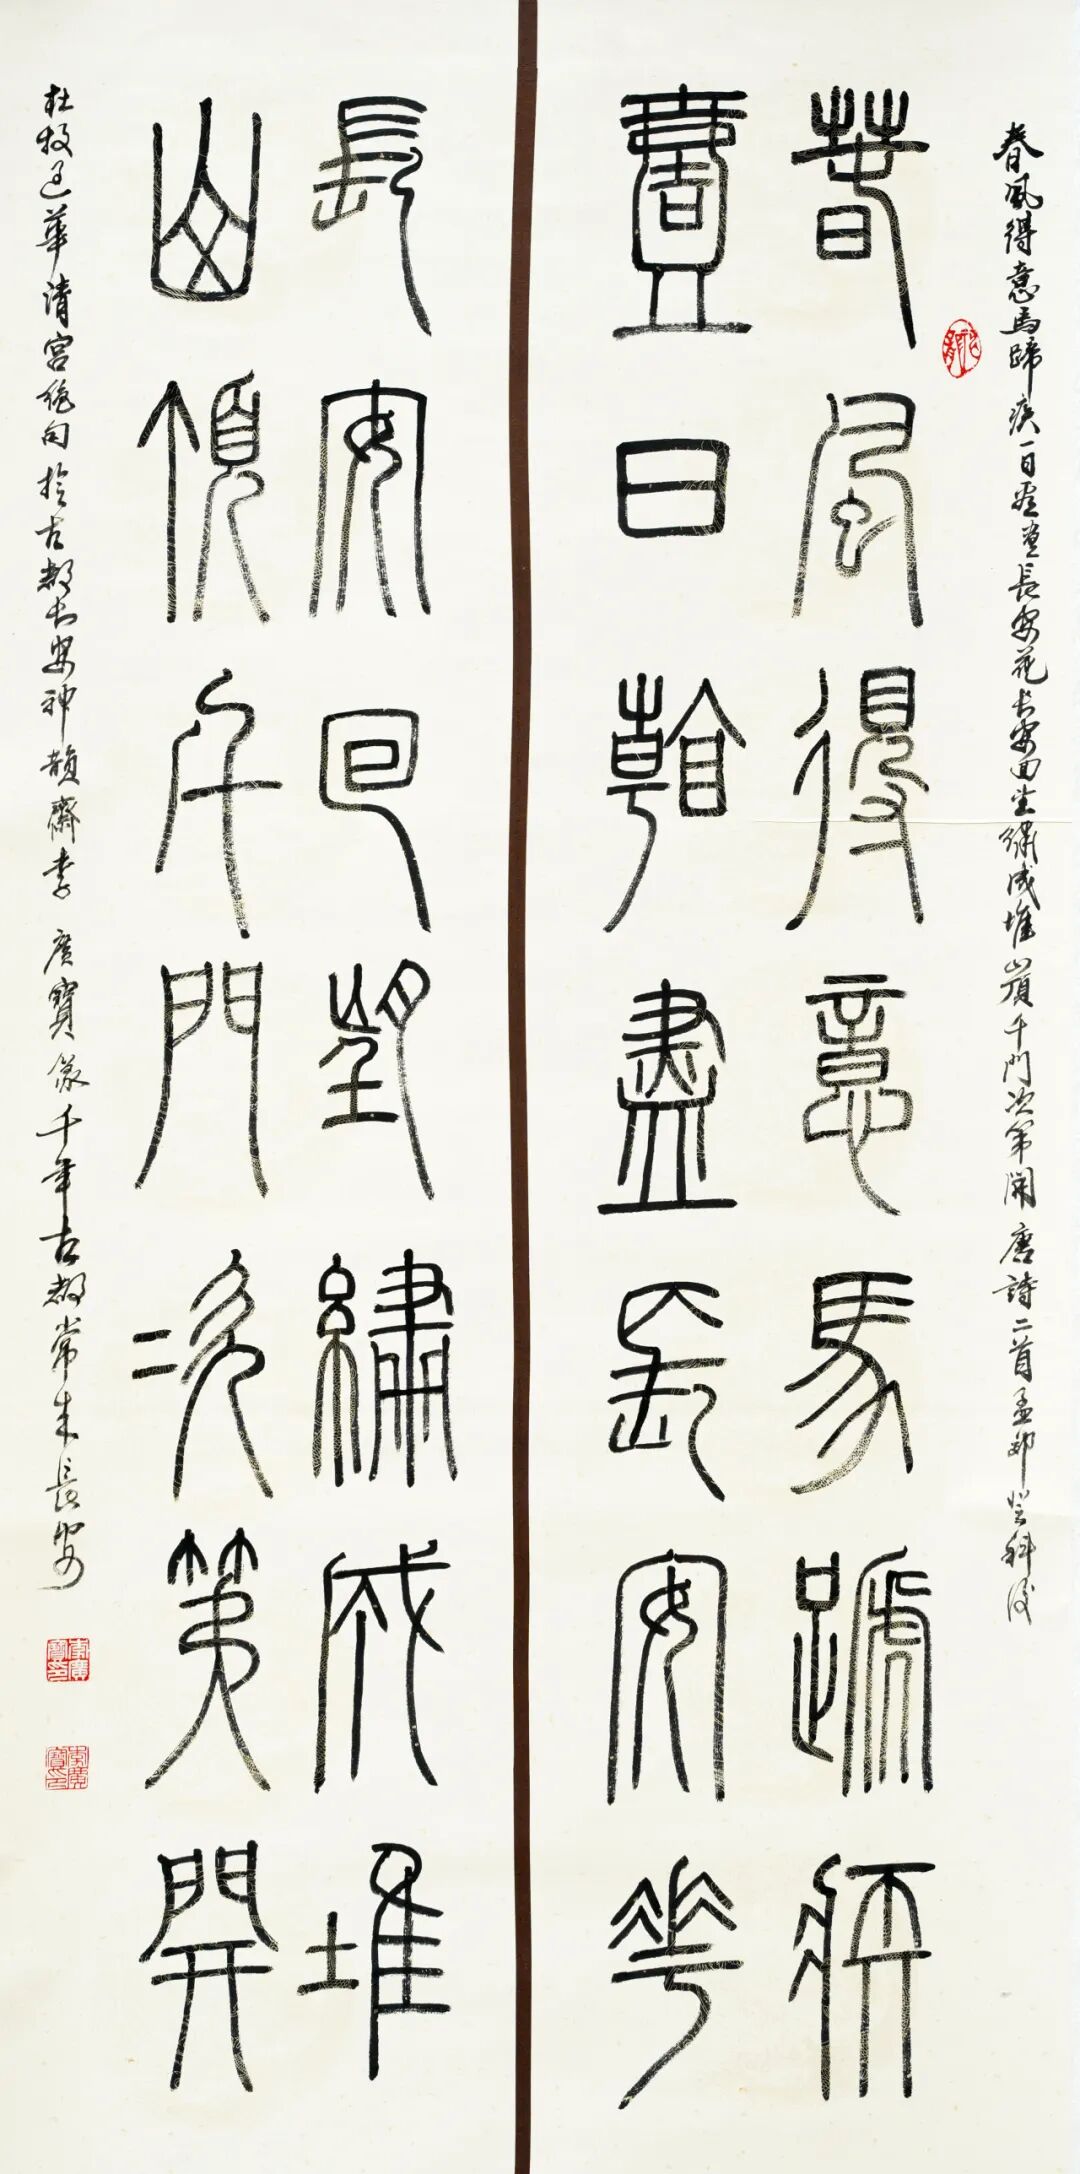 春風得意馬蹄疾一日看盡長安花长安回望繡成堆山頂千門次第開唐詩二首孟郊登科後
春風得意馬蹏疾
壹日看盡長安華
長安回望繡成堆
山頂千門次第開
杜牧過華清宫絶句於古都长安神韻齋李廣寶篆千年古都常来長安